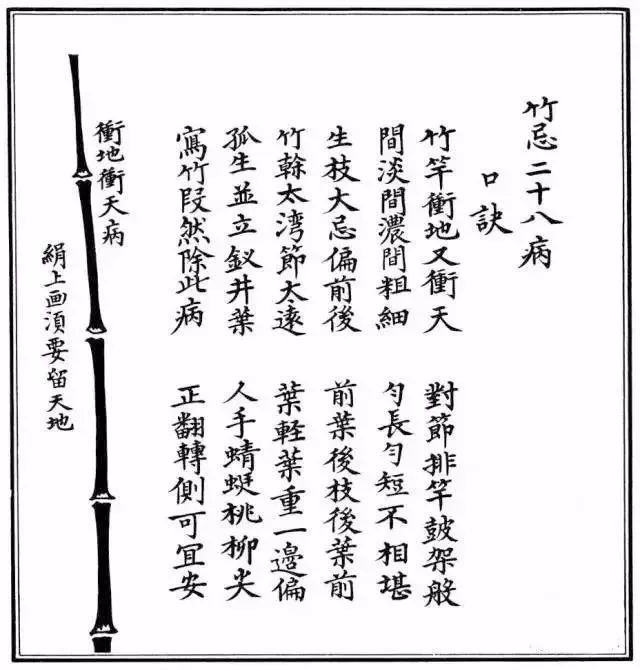 竹忌二十八病
口訣
竹竿衝地又衝天　對節排竿皷架般
間淡間濃間粗細　勻長勻短不相堪
生枝大忌偏前後　前葉後枝後葉前
竹榦太湾節太遠　葉軽葉重一邊偏
孤生並立釵井葉　人手蜻蜓桃柳尖
寫竹段然除此病　正翻轉側可宜安
衝地衝天病
絹上画須要留天地